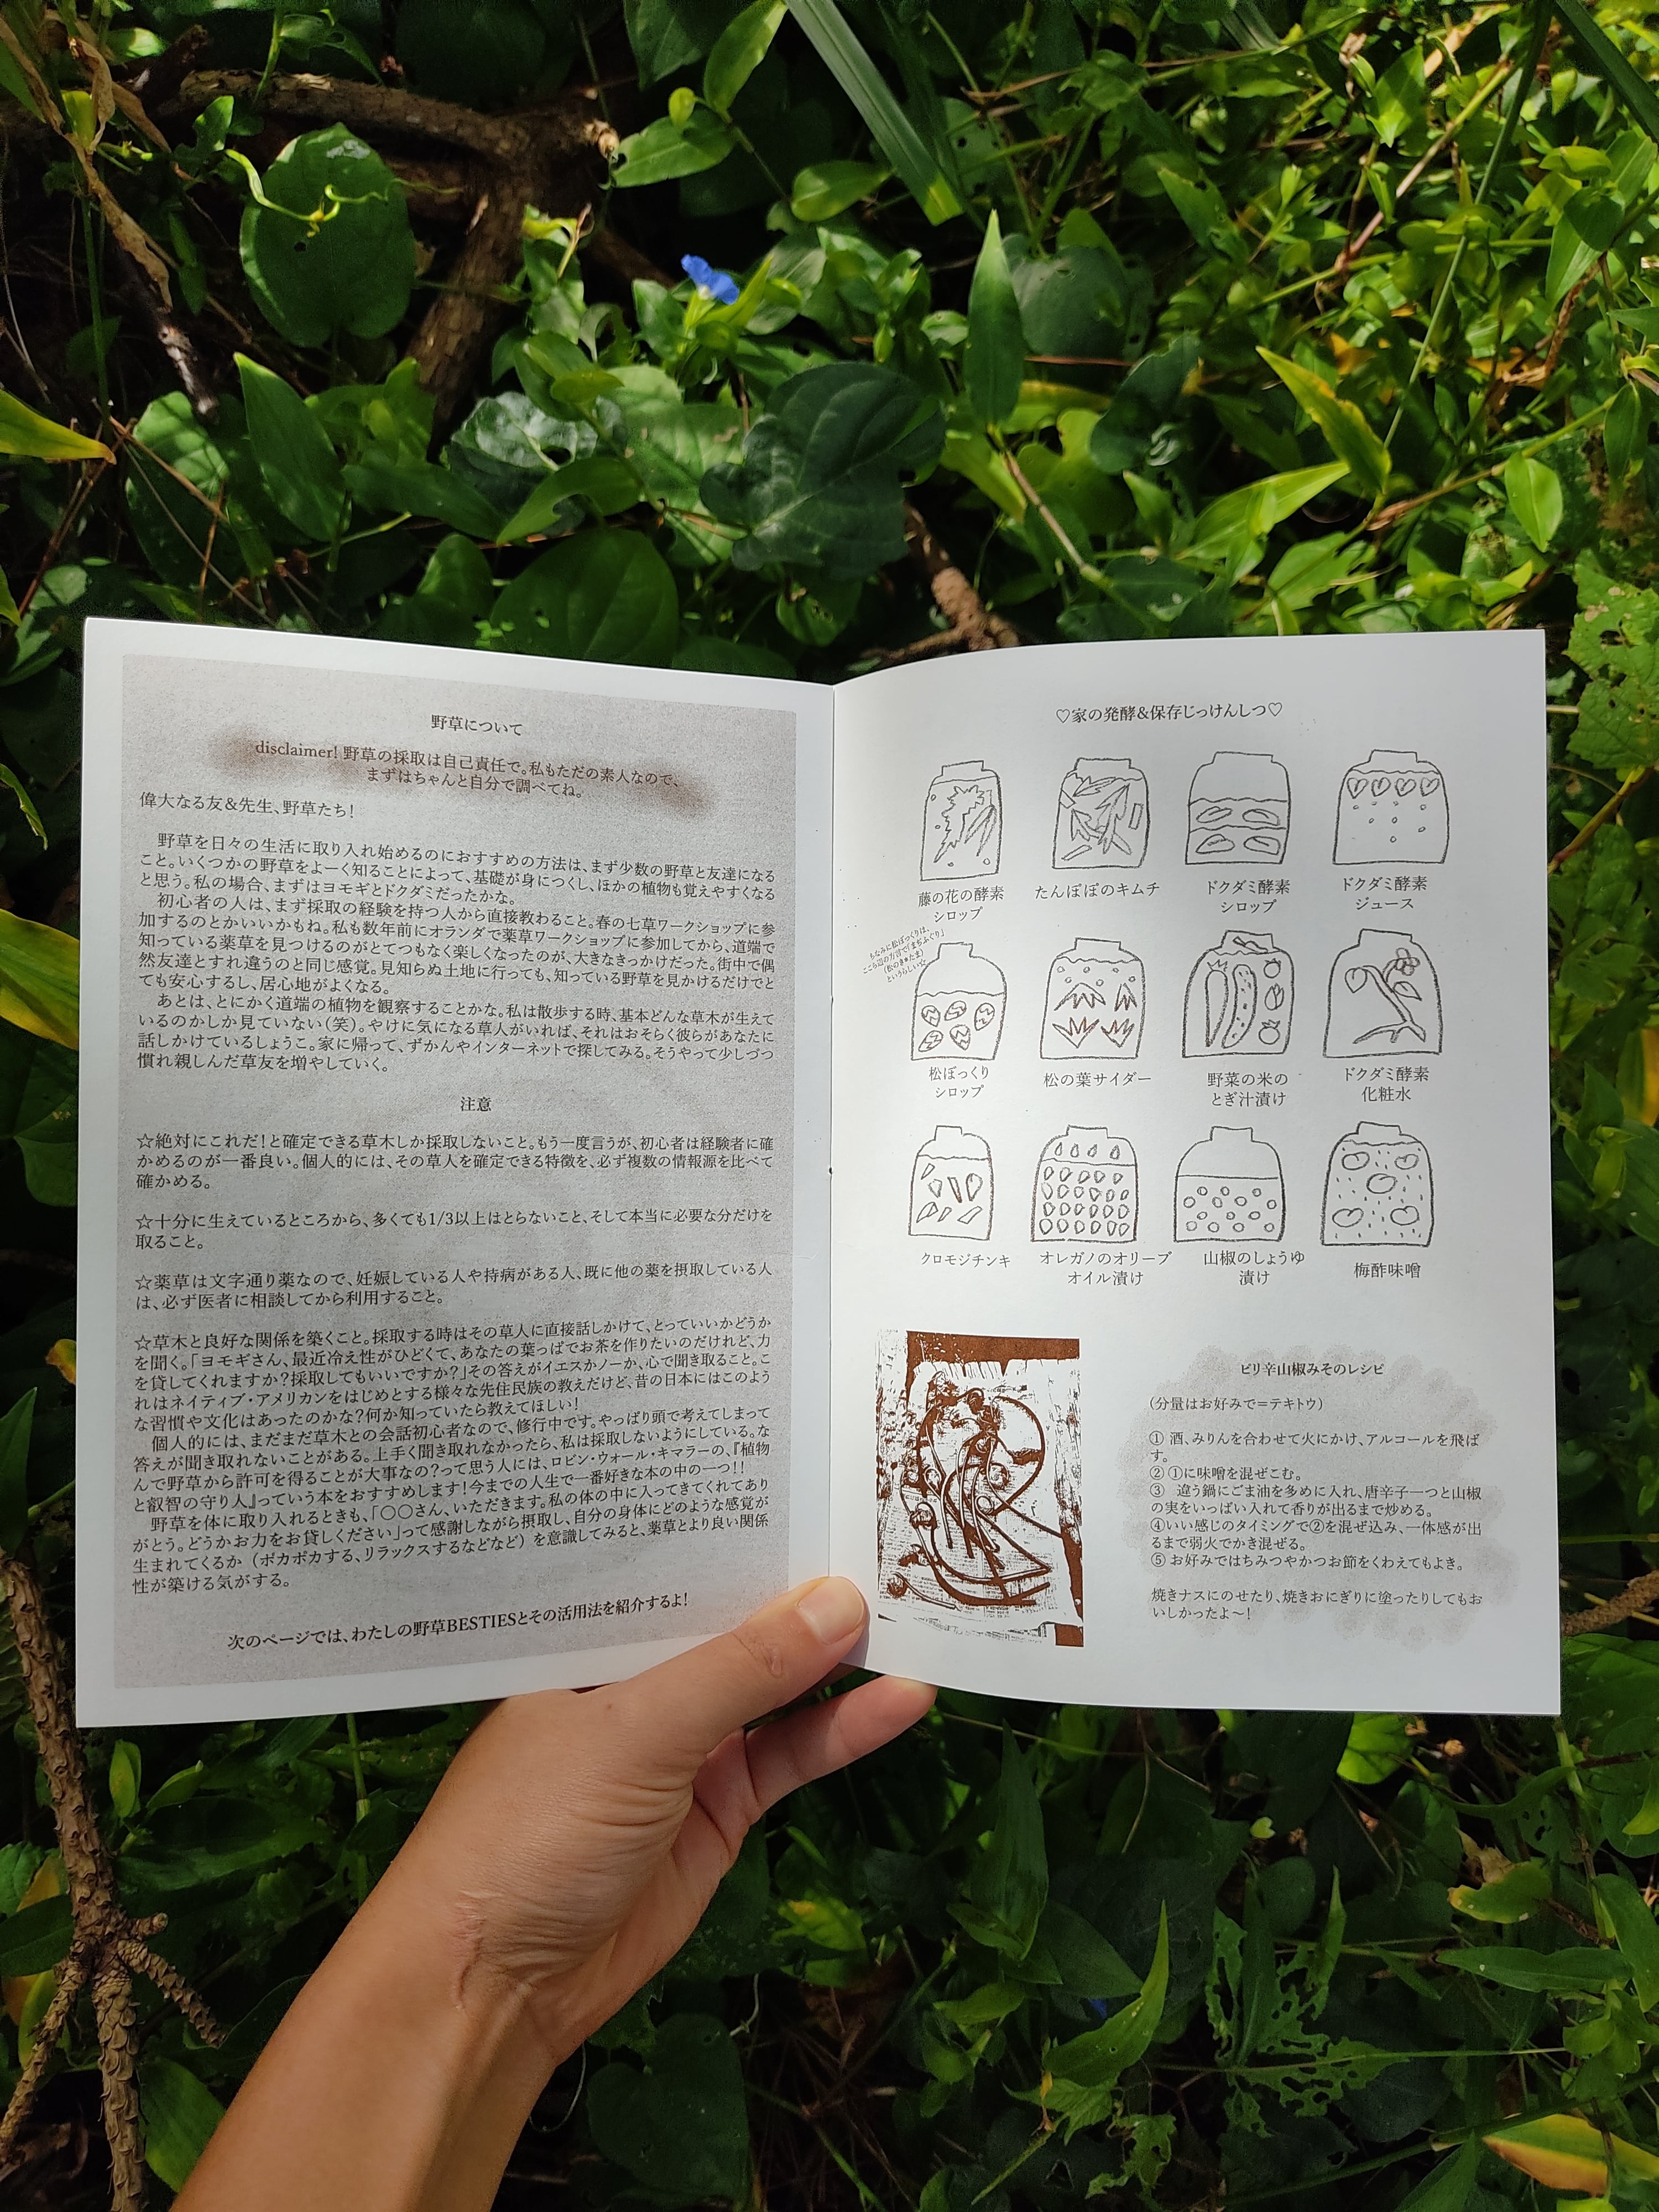 野草について
disclaimer! 野草の採取は自己責任で。私もただの素人なので、
まずはちゃんと自分で調べてね。
偉大なる友&先生、野草たち!
野草を日々の生活に取り入れ始めるのにおすすめの方法は、まず少数の野草と友達になる
こと。いくつかの野草をよーく知ることによって、基礎が身につくし、ほかの植物も覚えやすくなる
と思う。私の場合、まずはヨモギとドクダミだったかな。
初心者の人は、まず採取の経験を持つ人から直接教わること。春の七草ワークショップに参
加するのとかいいかもね。私も数年前にオランダで薬草ワークショップに参加してから、道端で
知っている薬草を見つけるのがとてつもなく楽しくなったのが、大きなきっかけだった。街中で偶
然友達とすれ違うのと同じ感覚。見知らぬ土地に行っても、知っている野草を見かけるだけでと
ても安心するし、居心地がよくなる。
あとは、とにかく道端の植物を観察することかな。私は散歩する時、基本どんな草木が生えて
いるのかしか見ていない(笑)。やけに気になる草人がいれば、それはおそらく彼らがあなたに
話しかけているしょうこ。家に帰って、ずかんやインターネットで探してみる。そうやって少しづつ
慣れ親しんだ草友を増やしていく。
注意
☆絶対にこれだ!と確定できる草木しか採取しないこと。もう一度言うが、初心者は経験者に確
かめるのが一番良い。個人的には、その草人を確定できる特徴を、必ず複数の情報源を比べて
確かめる。
☆十分に生えているところから、多くても1/3以上はとらないこと、そして本当に必要な分だけを
取ること。
☆薬草は文字通り薬なので、妊娠している人や持病がある人、既に他の薬を摂取している人
は、必ず医者に相談してから利用すること。
☆草木と良好な関係を築くこと。採取する時はその草人に直接話しかけて、とっていいかどうか
を聞く。「ヨモギさん、最近冷え性がひどくて、あなたの葉っぱでお茶を作りたいのだけれど、力
を貸してくれますか?採取してもいいですか?」その答えがイエスかノーか、心で聞き取ること。こ
れはネイティブ・アメリカンをはじめとする様々な先住民族の教えだけど、昔の日本にはこのよう
な習慣や文化はあったのかな?何か知っていたら教えてほしい!
個人的には、まだまだ草木との会話初心者なので、修行中です。やっぱり頭で考えてしまって
答えが聞き取れないことがある。上手く聞き取れなかったら、私は採取しないようにしている。な
んで野草から許可を得ることが大事なの?って思う人には、ロビン・ウォール・キマラーの、『植物
と叡智の守り人』っていう本をおすすめします!今までの人生で一番好きな本の中の一つ!!
野草を体に取り入れるときも、「〇〇さん、いただきます。私の体の中に入ってきてくれてあり
がとう。どうかお力をお貸しください」って感謝しながら摂取し、自分の身体にどのような感覚が
生まれてくるか（ポカポカする、リラックスするなどなど）を意識してみると、薬草とより良い関係
性が築ける気がする。
次のページでは、わたしの野草BESTIESとその活用法を紹介するよ!
♡家の発酵&保存じっけんしつ♡
藤の花の酵素
シロップ
たんぽぽのキムチ
ドクダミ酵素
シロップ
ドクダミ酵素
ジュース
ちなみに松ぼっくりは、
ここら辺の方言で「まちふぐり」
というらしい☆
松ぼっくり
シロップ
松の葉サイダー
野菜の米の
とぎ汁漬け
ドクダミ酵素
化粧水
クロモジチンキ
オレガノのオリーブ
オイル漬け
山椒のしょうゆ
漬け
梅酢味噌
ピリ辛山椒みそのレシピ
(分量はお好みで=テキトウ)
① 酒、みりんを合わせて火にかけ、アルコールを飛ば
す。
② ①に味噌を混ぜこむ。
③ 違う鍋にごま油を多めに入れ、唐辛子一つと山椒
の実をいっぱい入れて香りが出るまで炒める。
④いい感じのタイミングで②を混ぜ込み、一体感が出
るまで弱火でかき混ぜる。
⑤ お好みではちみつやかつお節をくわえてもよき。
焼きナスにのせたり、焼きおにぎりに塗ったりしてもお
いしかったよ～!